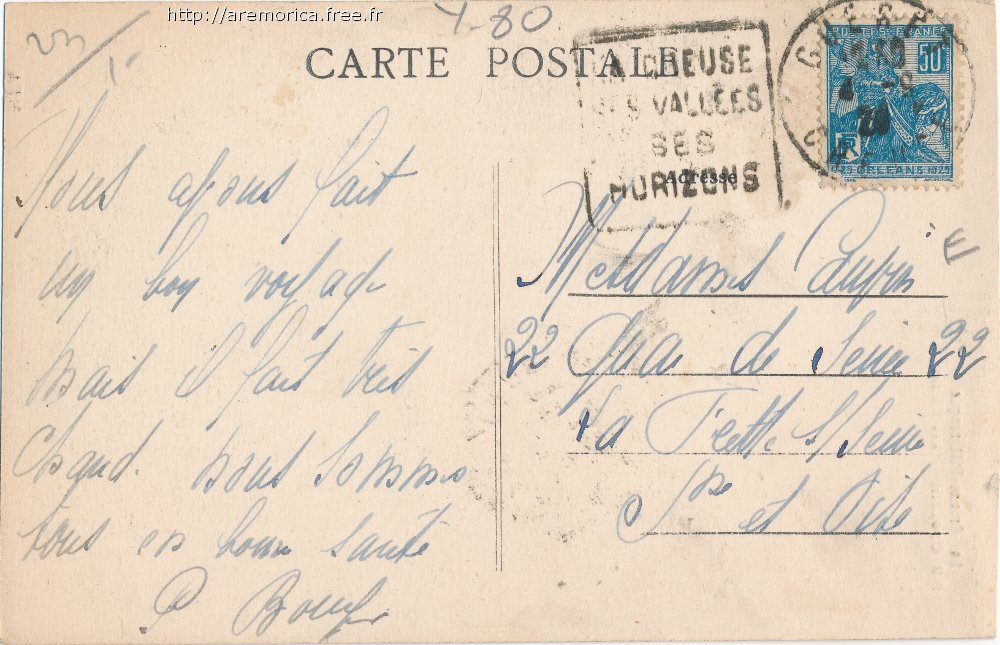 http://aremorica.free.fr
4-80
23
1-
CARTE POSTALE
LA CREUSE
SES VALLÉES
SES
HORIZONS
GUERET
CREUSE
POSTES FRANCE
50c
RF
1429 ORLEANS 1929
Adresse
Nous avons fait
un bon voyage
mais il fait très
chaud. nous sommes
tous en bonne santé
P
Mesdames
22 Quai de Seine 22
La Frette S/Seine
Sne et Oise
E